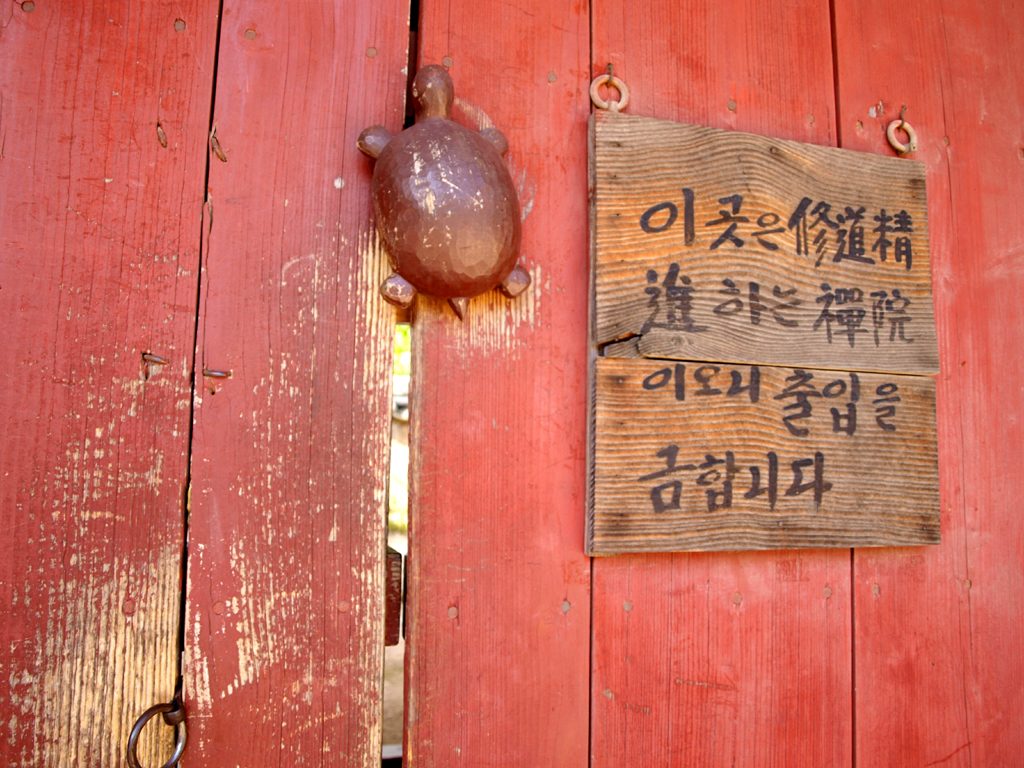 이 곳은 修道精
進 하는 禪院
이오니 출입을
금합니다